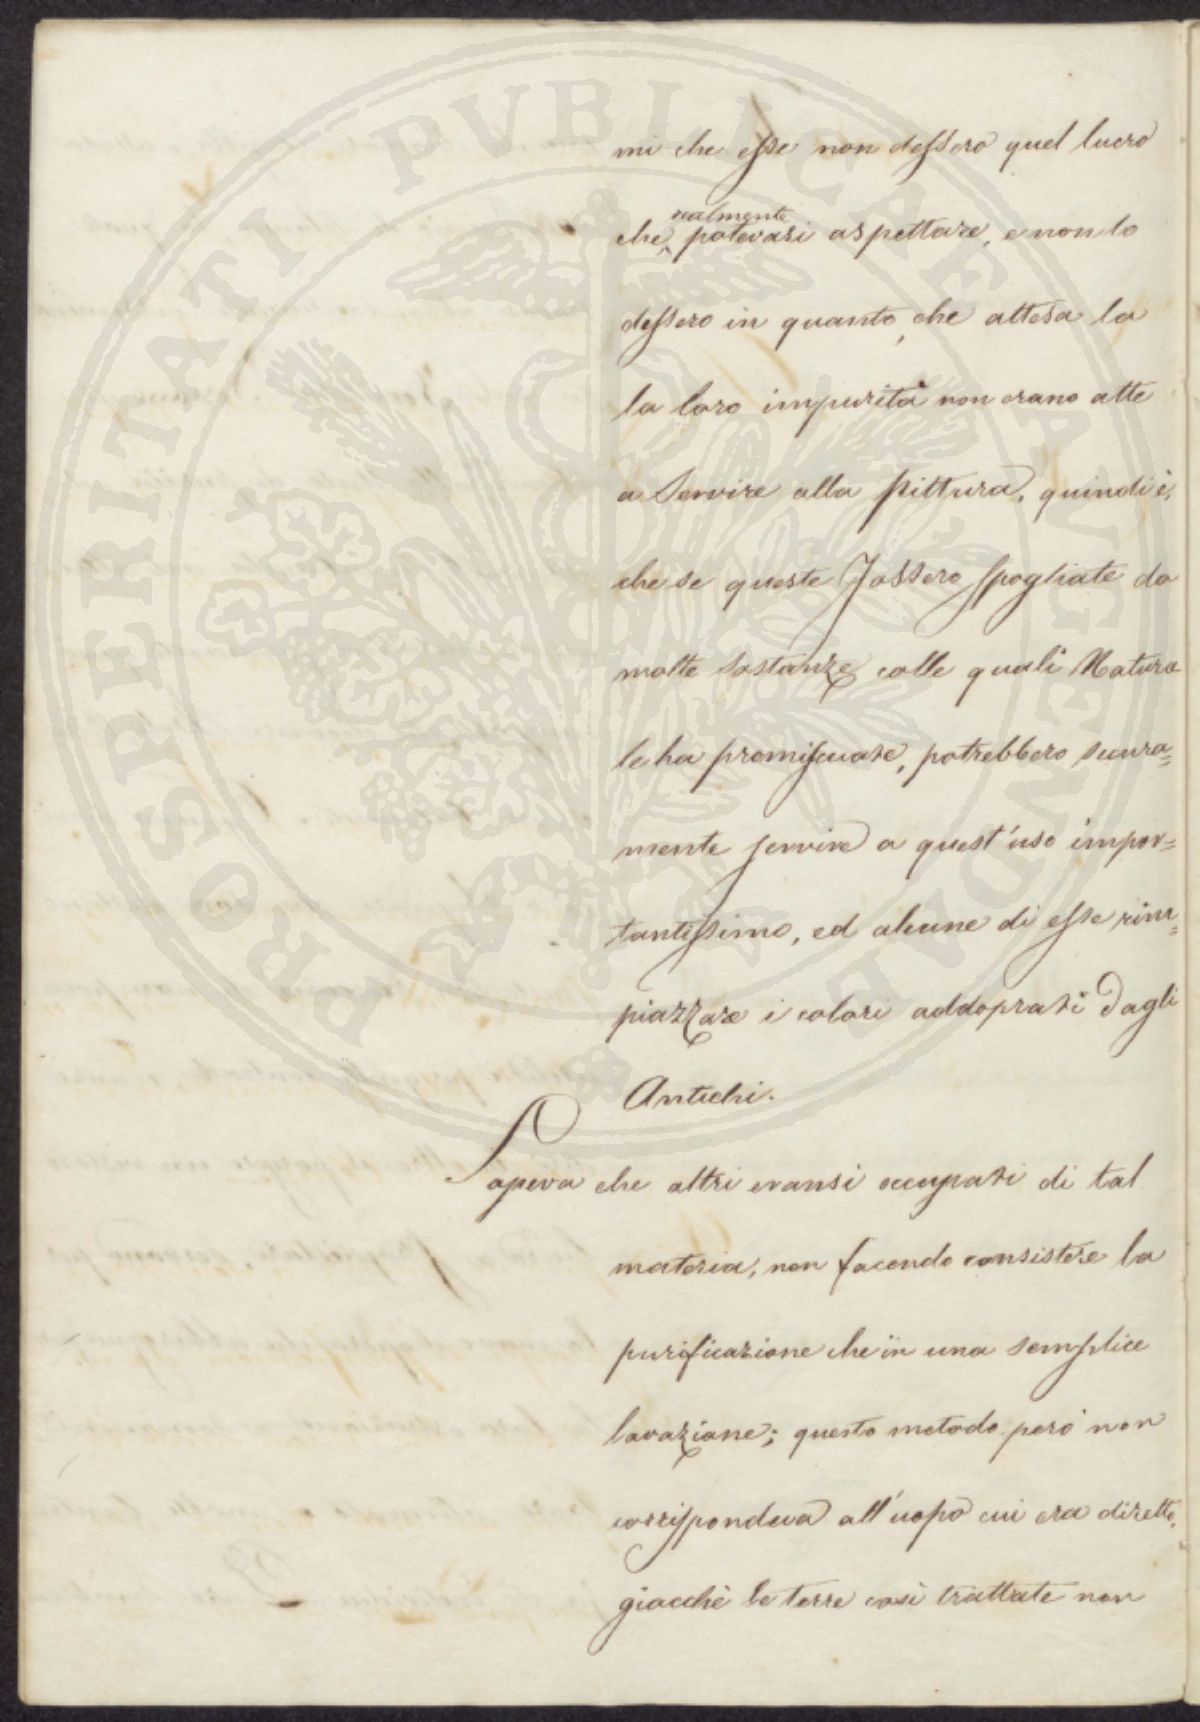 PROSPERITATI PVBLICAE AVGENDAE
mi che esse non dessero quel lucro
realmente
che potevasi aspettare, e non lo
dessero in quanto, che attesa la
la loro impurità non erano atte
a Servire alla Pittura, quindi è,
che se queste fossero spogliate da
molte sostanze colle quali Natura
le ha promiscuate, potrebbero sicura=
mente servire a quest'uso impor=
tantissimo, ed alcune di esse rim=
piazzare i colori addoprati dagli
Antichi.
Sapeva che altri eransi occupati di tal
materia, non facendo consistere la
purificazione che in una semplice
lavazione; questo metodo però non
corrispondeva all'uopo cui era diretto,
giacchè le terre così trattate non